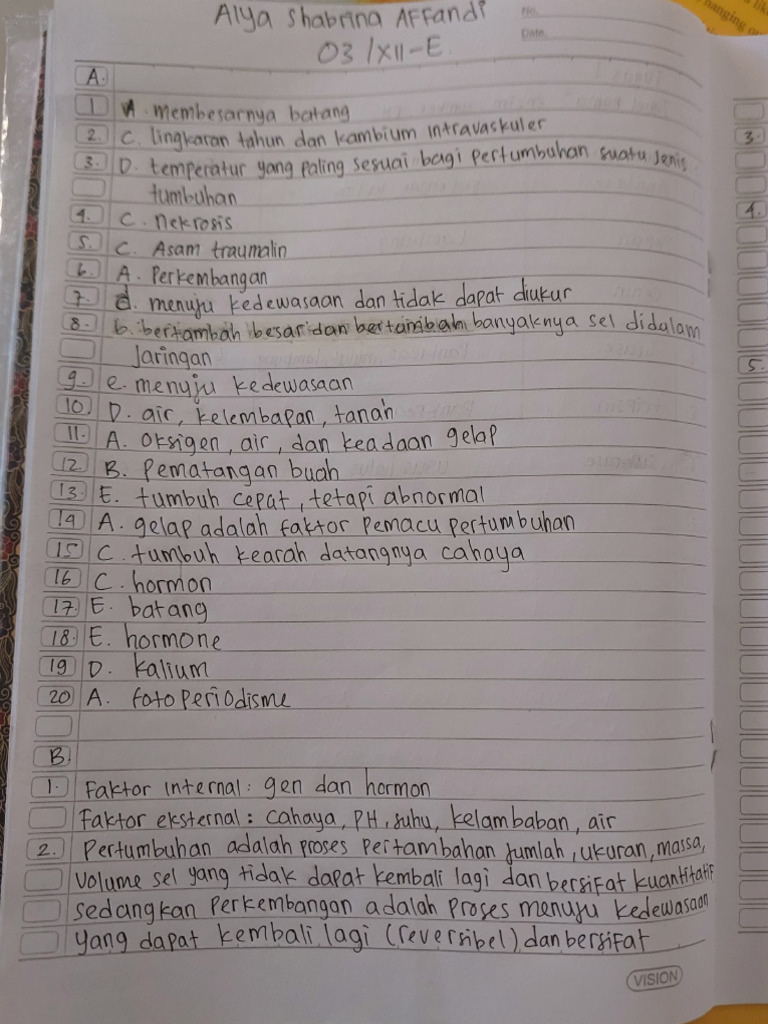 Alya Shabrina Affandi
No.
Date.
03 / XII-E.
A.
1 A. membesarnya batang
2. C. lingkaran tahun dan kambium intravaskuler
3. D. temperatur yang paling sesuai bagi pertumbuhan suatu jenis
tumbuhan
4. C. nekrosis
5. C. Asam traumalin
6. A. Perkembangan
7. d. menuju kedewasaan dan tidak dapat diukur
8. b. bertambah besar dan bertambah banyaknya sel didalam
jaringan
9. e. menuju kedewasaan
10 D. air, kelembapan, tanah
11. A. oksigen, air, dan keadaan gelap
12 B. Pematangan buah
13. E. tumbuh cepat, tetapi abnormal
14 A. gelap adalah faktor pemacu pertumbuhan
15 C. tumbuh kearah datangnya cahaya
16 C. hormon
17. E. batang
18. E. hormone
19 D. kalium
20 A. fotoperiodisme
B.
1. Faktor internal: gen dan hormon
Faktor eksternal: cahaya, PH, suhu, kelambaban, air
2. Pertumbuhan adalah proses pertambahan jumlah, ukuran, massa,
volume sel yang tidak dapat kembali lagi dan bersifat kuantitatif
sedangkan Perkembangan adalah proses menuju kedewasaan
yang dapat kembali lagi (reversibel) dan bersifat
VISION
3.
4.
5.